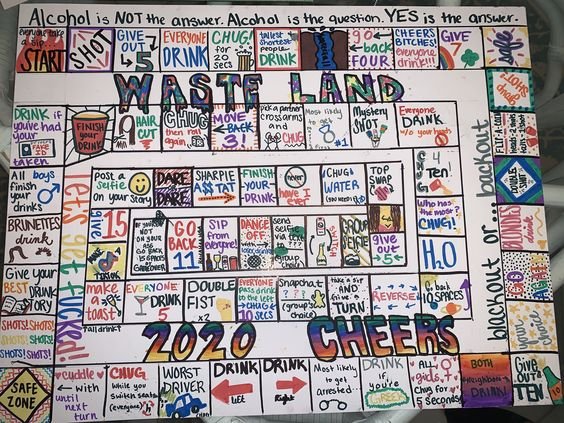 Alcohol is NOT the answer. Alcohol is the question. YES is the answer.
everyone take a sip...
START
SHOT
GIVE OUT 5
EVERYONE DRINK
CHUG! for 20 secs
tallest shortest people DRINK
go back FOUR
CHEERS BITCHES! everyone drink!!!
GIVE 7
selfie
WASTE LAND
DRINK if you've had your FAKE ID taken
FINISH your DRINK
HAIR CUT
CHUG then roll again
MOVE BACK 3!
pick a partner cross arms and CHUG
Most likely to get
#1
Mystery SHOT
Everyone DRINK w/o your hands
LIARS drink
let's get fucked!
blackout or... backout
FLIP-A-COIN
Heads-2 drinks
tails-1 drink
All boys finish your drinks
post a selfie on your story
DARE
DARE
SHARPIE A$$ TAT
FINISH YOUR DRINK
never have I ever
CHUG WATER (you need it)
TOP SWAP
4 Ten
DOUBLE SHOT
BRUNETTES drink
give 15
IF YOU'RE NOT ON YOUR ASS BACK 15 SPACES OF GAMEOVER
GO BACK 11
SIP from everyone!
DANCE OFF with
send self via text ??? group choice
GROUP SELFIE
give out 5
Who has the most? CHUG!
BLONDES drink
Give your BEST DRUNK STORY
make a toast!
EVERYONE DRINK 5
DOUBLE FIST x2
EVERYONE pass drink to the left CHUG 10 secs
Snapchat ??? (group's choice)
take a sip AND five's TURN
REVERSE
Go back 10 SPACES
H₂O
SHOTS! SHOTS!
SHOTS! SHOTS!
SHOTS! SHOTS!
2020 CHEERS
your choice
SAFE ZONE
cuddle with until next turn
CHUG while you switch seats (everyone)
WORST DRIVER
DRINK left
DRINK Right
Most likely to get arrested...
DRINK if you're GREEK
ALL girls chug for 5 seconds
BOTH neighbors DRINK!
Give OUT TEN